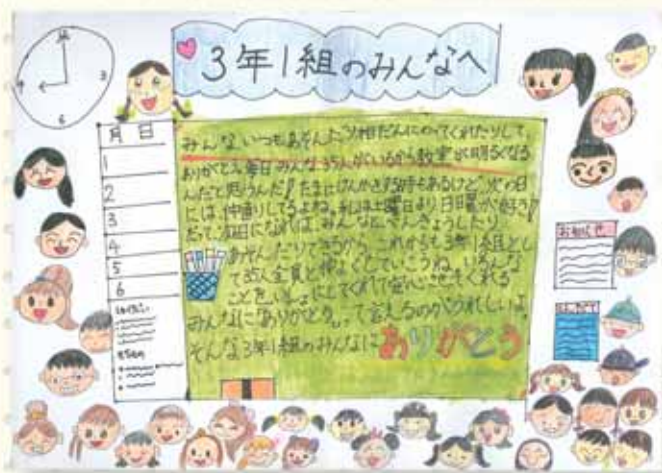 3年1組のみんなへ
12
3
6
9
月 日
1
2
3
4
5
6
みんないつもあそんだり相だんにのってくれたりして、
ありがとう。毎日みんな35人がいるから教室が明るくなる
んだと思うんだ！たまにけんかする時もあるけど、次の日
には仲直りしてるよね。私は土曜日より日曜日が好き！
だって、月曜日になれば、みんなとべんきょうしたり
あそんだりできるから。これからも3年1組とし
て35人全員と仲よくしていこうね。いろんな
ことをいっしょにしてくれて
みんなに「ありがとう。」って言えるのがうれしいよ。
そんな3年1組のみんなにありがとう
おしらせ